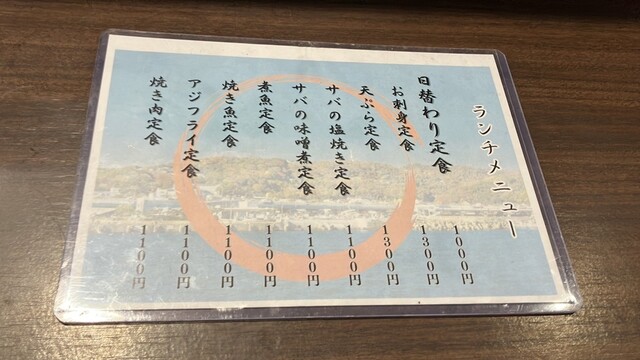 ランチメニュー
日替わり定食 1000円
お刺身定食 1300円
天ぷら定食 1300円
サバの塩焼き定食 1100円
サバの味噌煮定食 1100円
煮魚定食 1100円
焼き魚定食 1100円
アジフライ定食 1100円
焼き肉定食 1100円